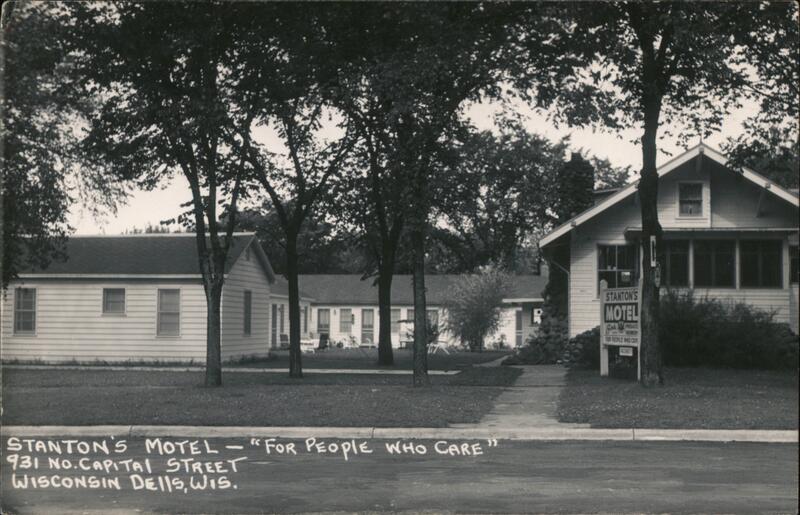 STANTON'S
MOTEL
FOR PEOPLE WHO CARE
STANTON'S MOTEL — "FOR PEOPLE WHO CARE"
931 NO. CAPITAL STREET
WISCONSIN DELLS, WIS.